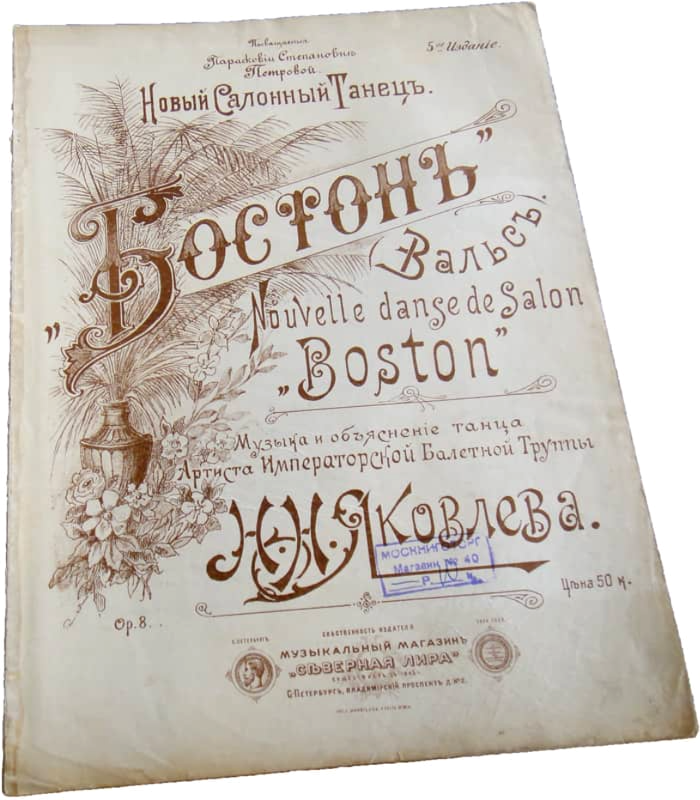 Посвящается
Парасковіи Степановнѣ
Петровой.
5ое Изданіе.
Новый Салонный Танецъ.
„Бостонъ”
Вальсъ.
Nouvelle danse de Salon
„Boston”
Музыка и объясненіе танца
Артиста Императорской Балетной Труппы
Н. Н. Яковлева.
МОСКНИГОТОРГ
Магазин № 40
Р. К.
Цѣна 50 к.
Op. 8.
С.ПЕТЕРБУРГЪ.
СОБСТВЕННОСТЬ ИЗДАТЕЛЯ
МУЗЫКАЛЬНЫЙ МАГАЗИНЪ
"СѢВЕРНАЯ ЛИРА"
С-ПЕТЕРБУРГЪ, ВЛАДИМІРСКІЙ ПРОСПЕКТЪ Д. №2.